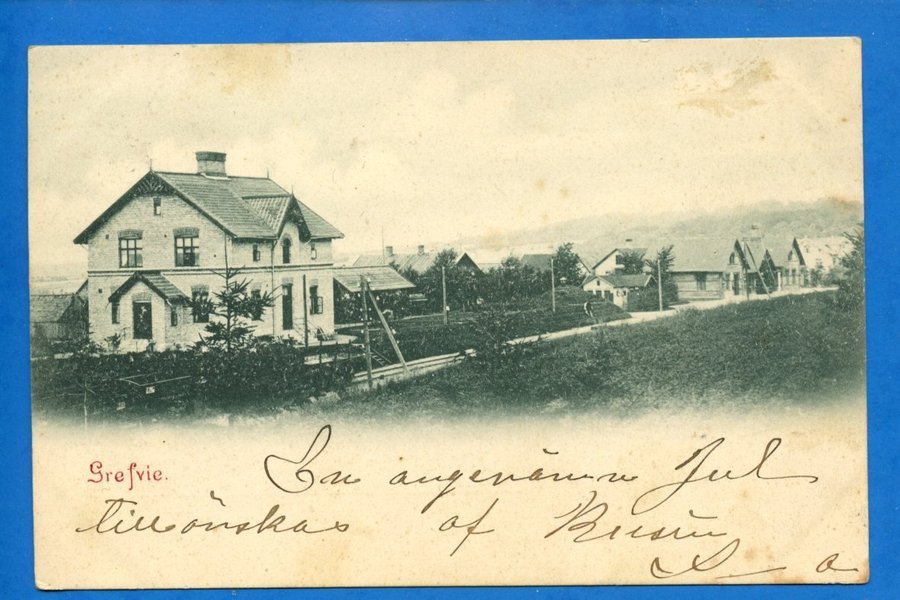 Grefvie.
En angenäm Jul
tillönskas af